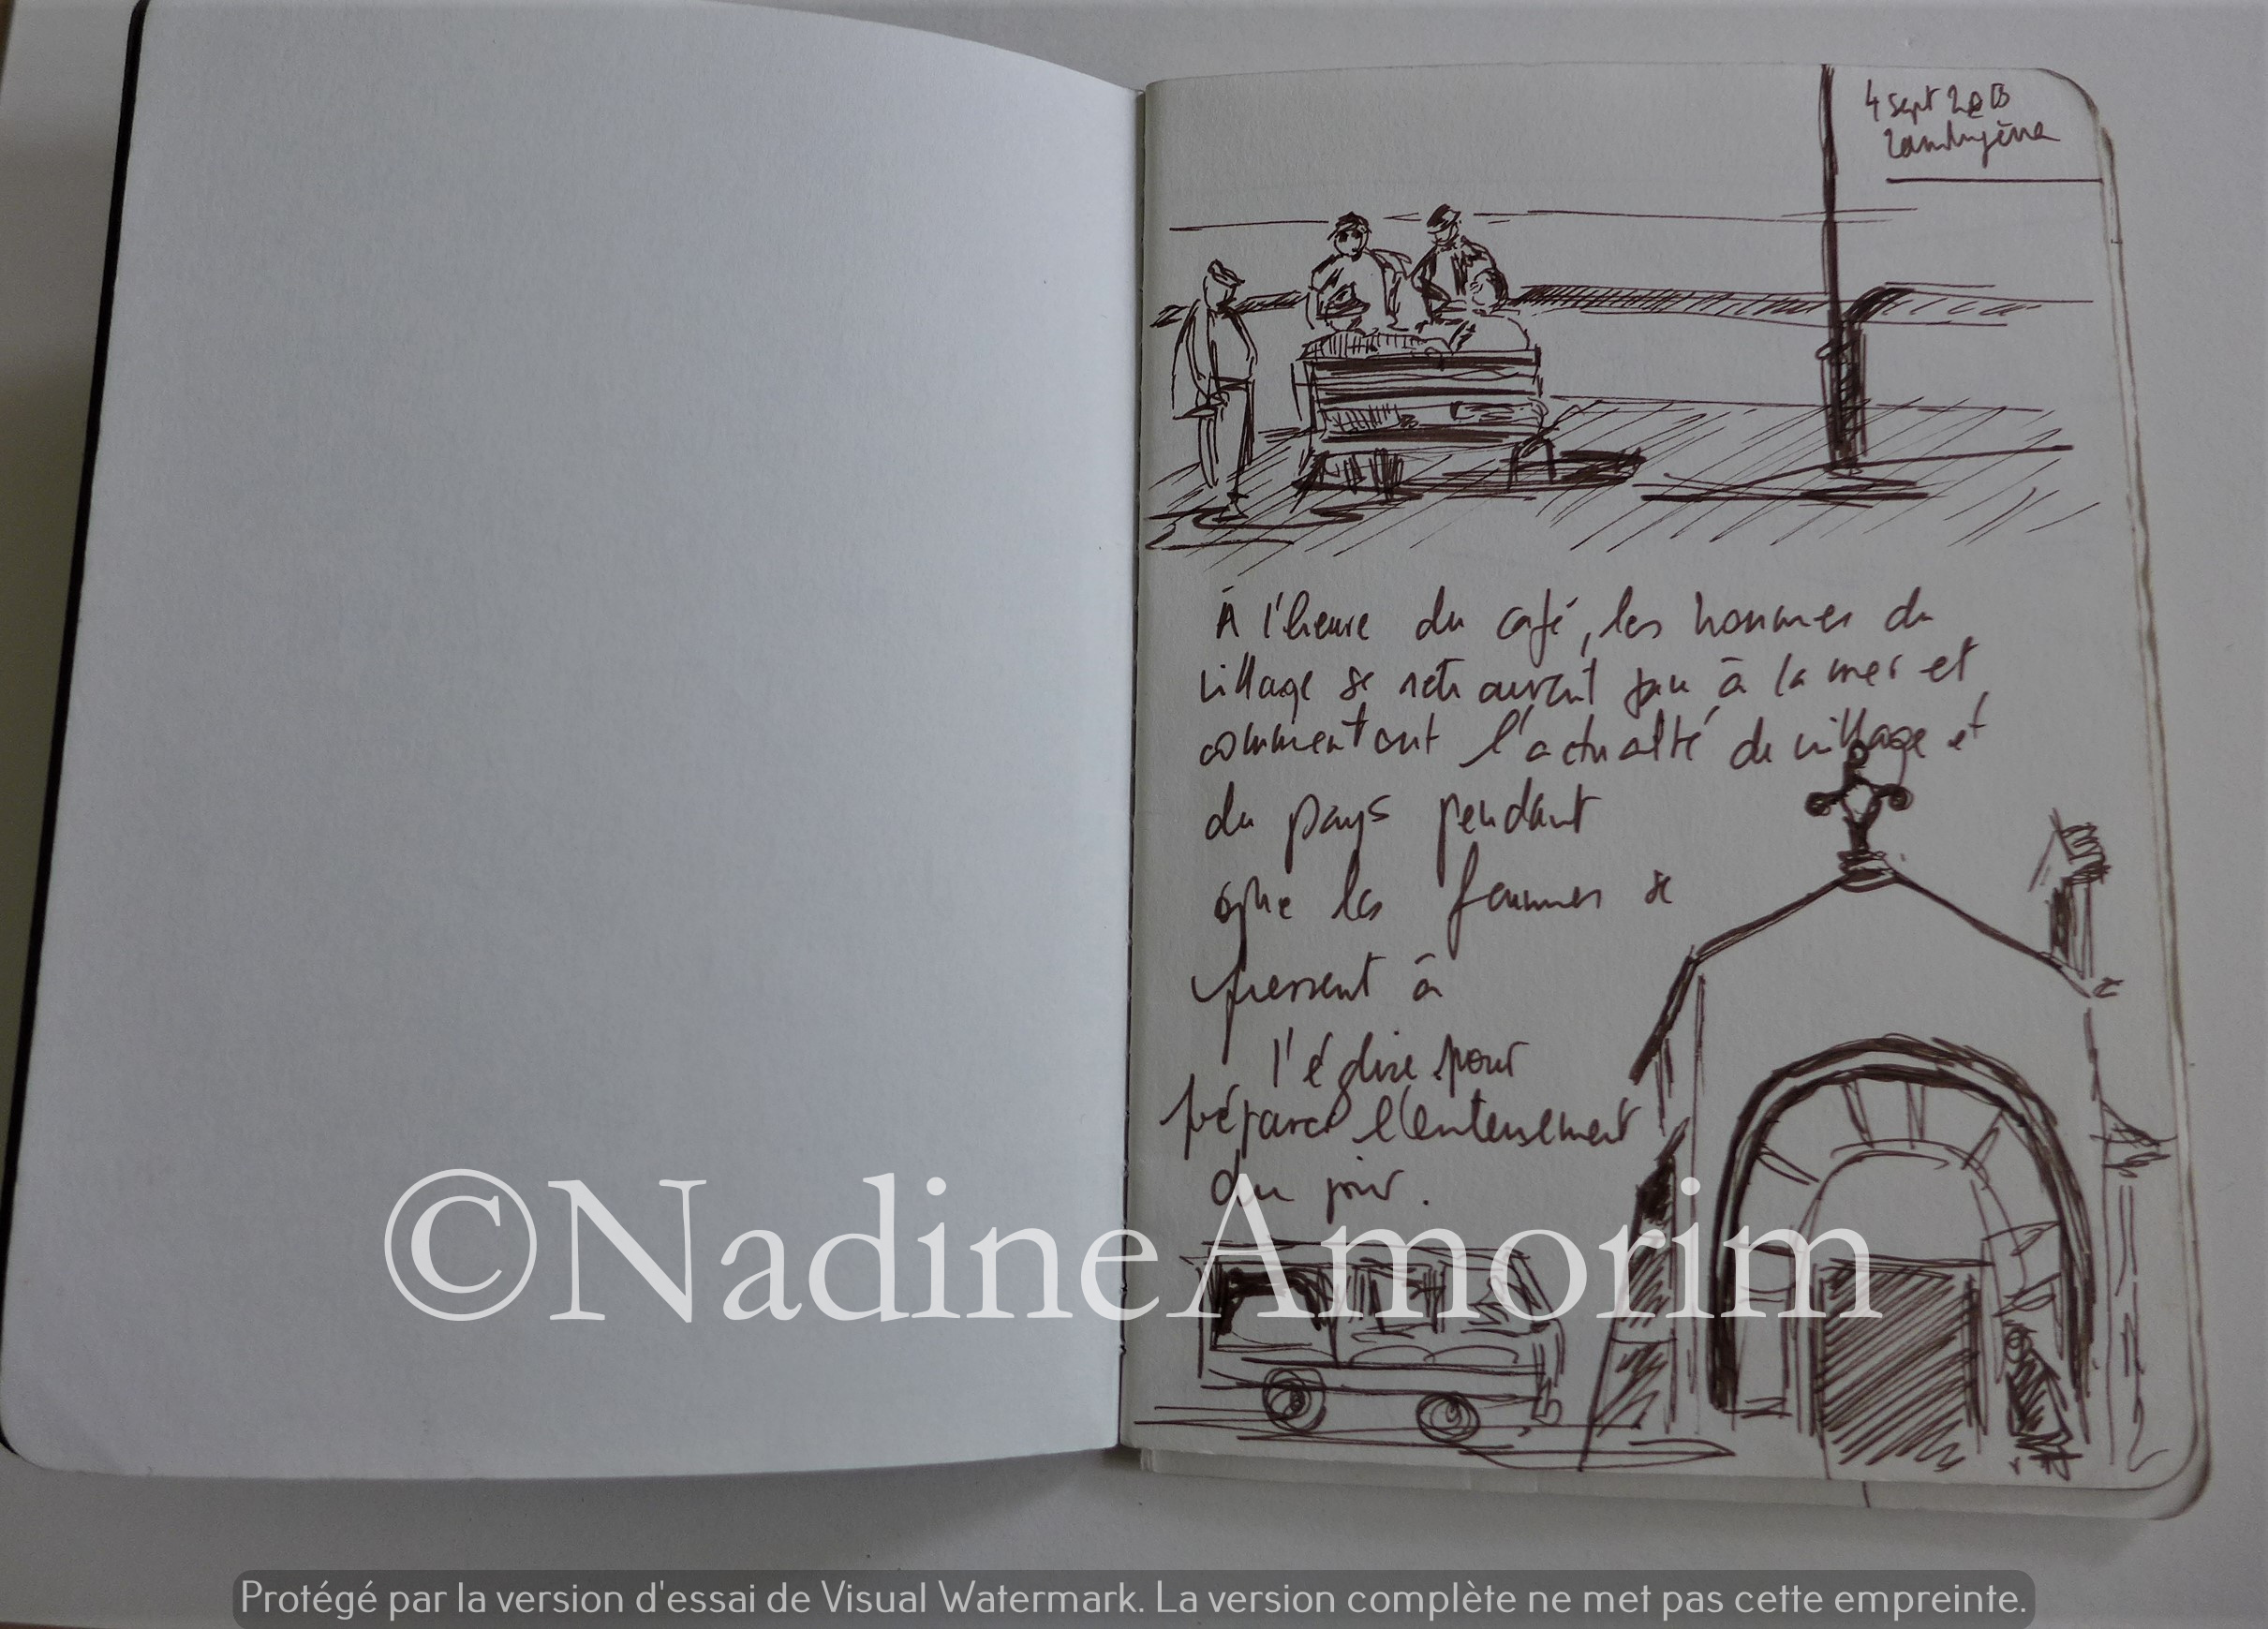 4 sept
À l'heure du café, les hommes du
village se retrouvent face à la mer et
commentent l'actualité du village et
du pays pendant
que les femmes se
pressent à
l'église pour
préparer l'enterrement
du jour.
©NadineAmorim
Protégé par la version d'essai de Visual Watermark. La version complète ne met pas cette empreinte.